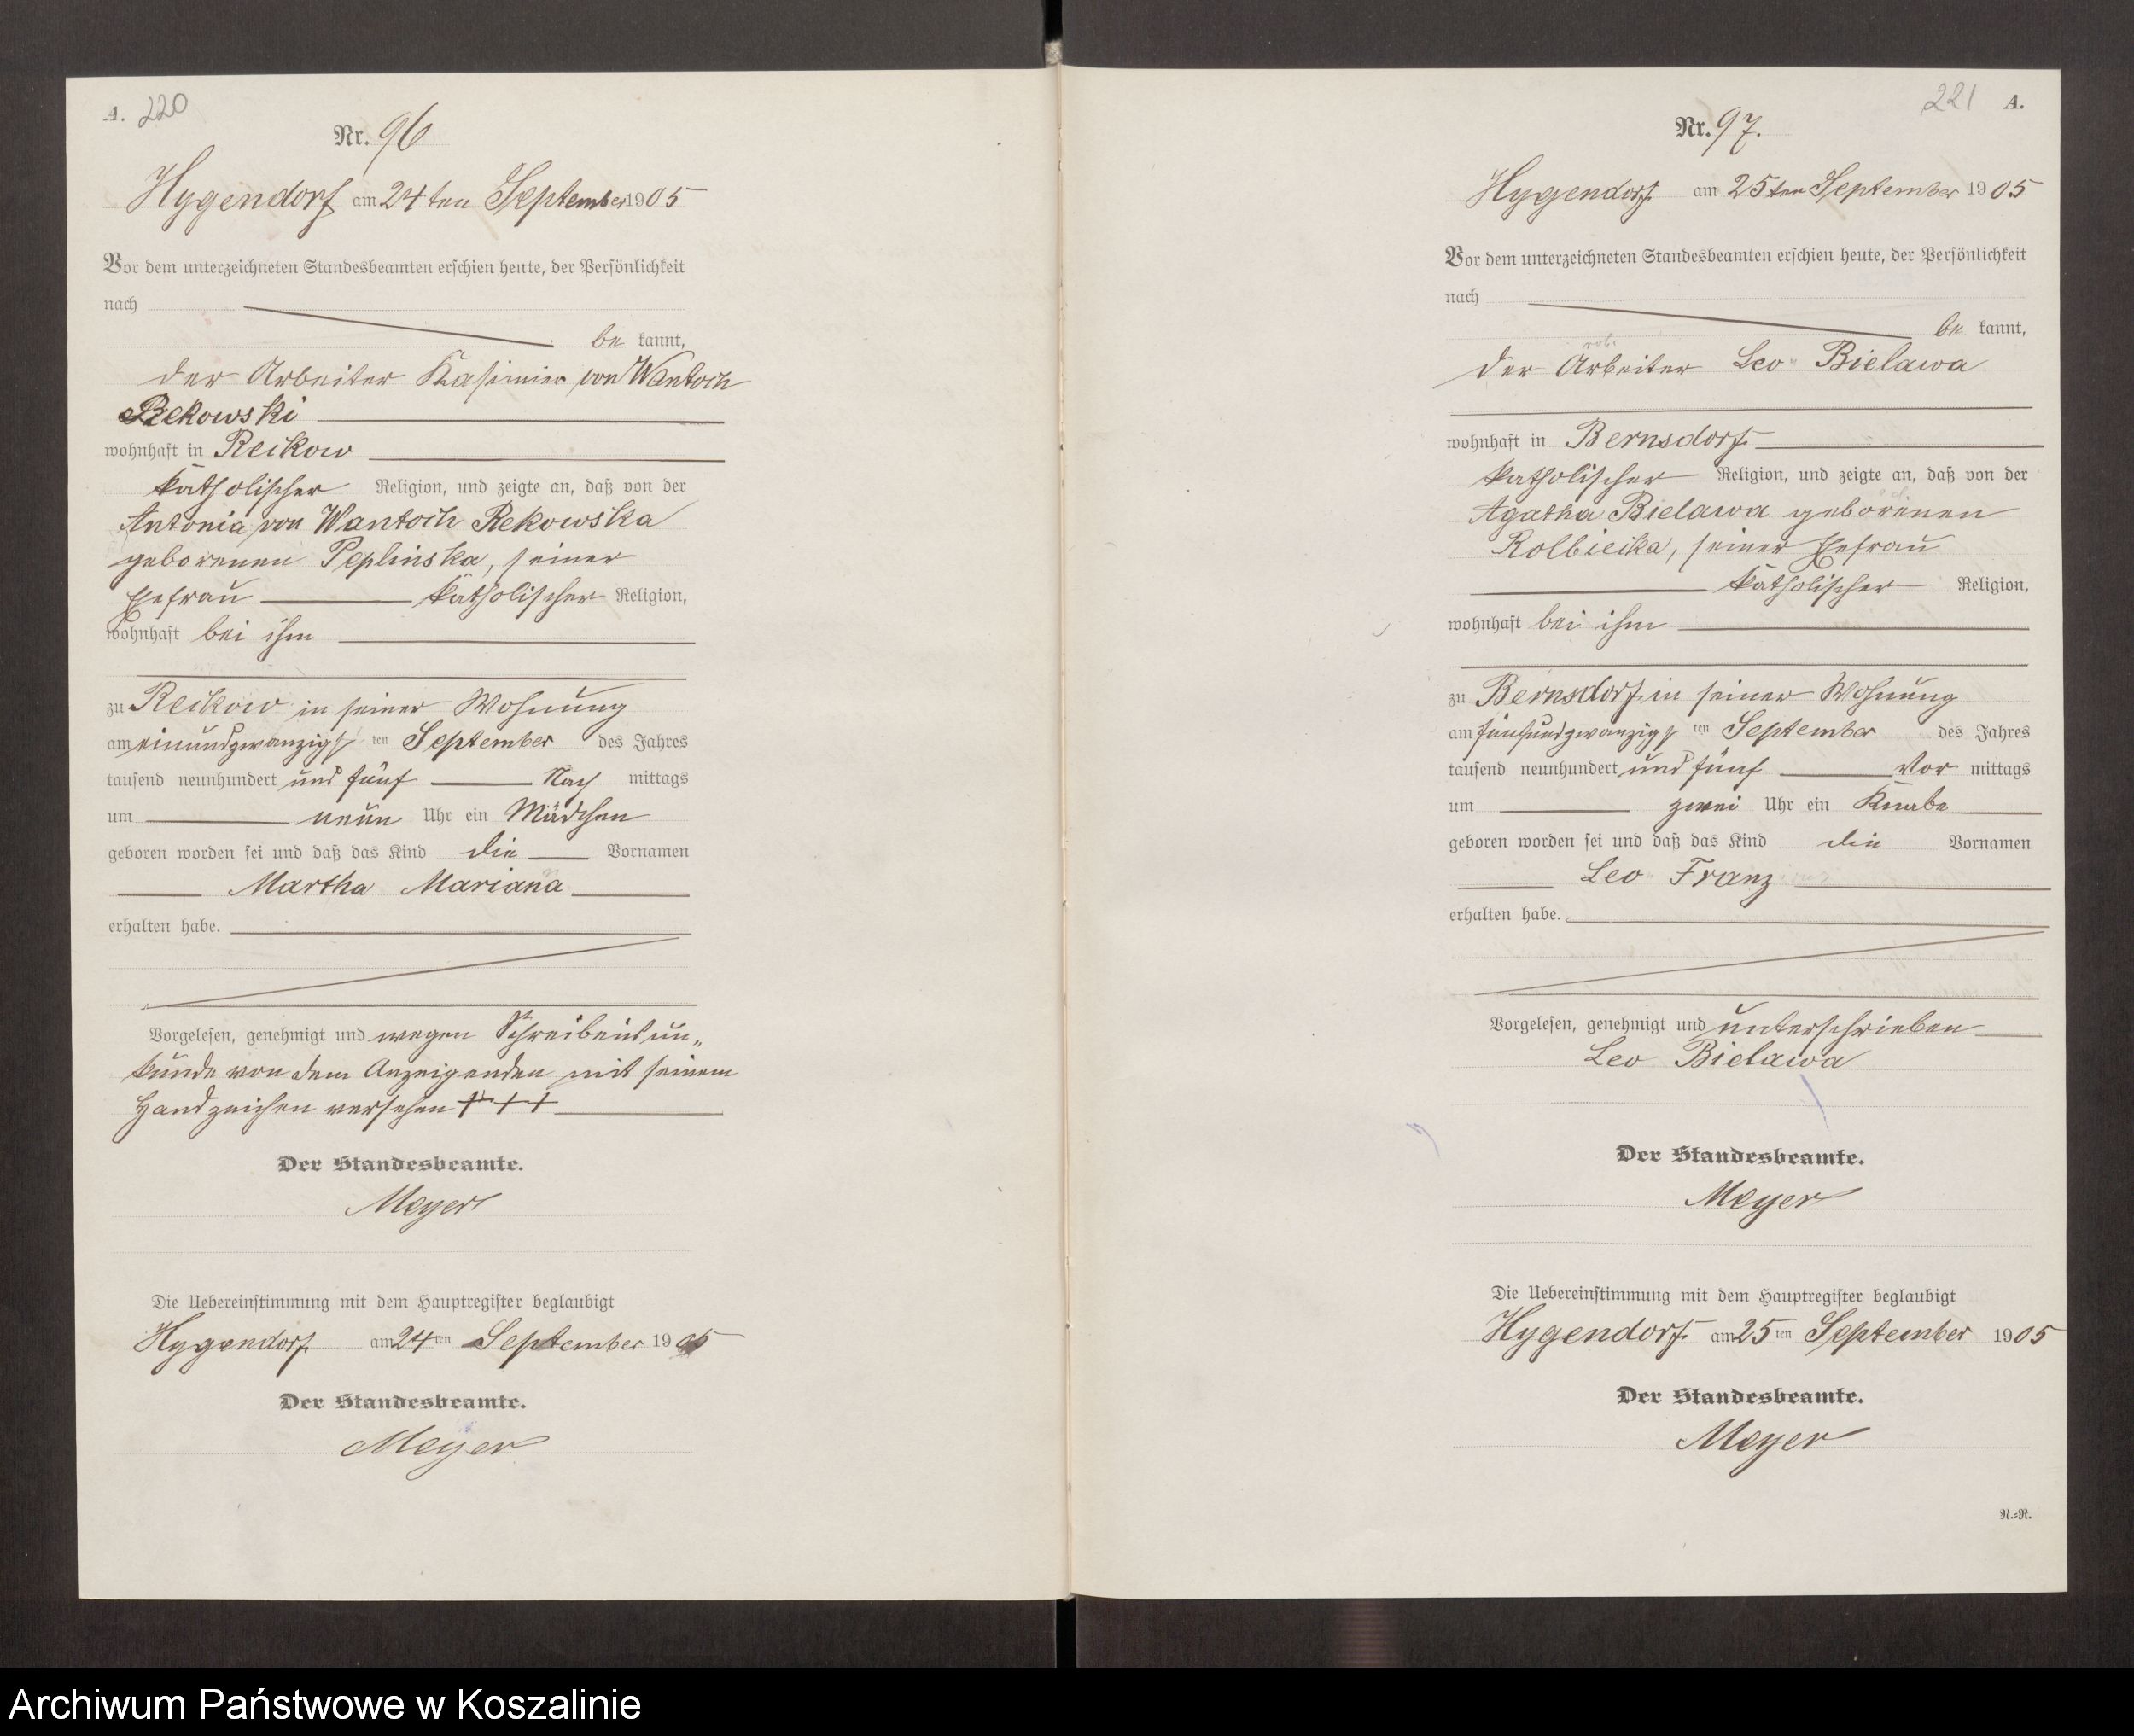 A. 220
Nr. 96
Hygendorf am 24ten September 1905
Vor dem unterzeichneten Standesbeamten erschien heute, der Persönlichkeit
nach
be kannt,
der Arbeiter Kasimier von Wantoch
Rekowski
wohnhaft in Reikow
katholischer Religion, und zeigte an, daß von der
Antonia von Wantoch Rekowska
geborenen Peplinska, seiner
Ehefrau katholischer Religion,
wohnhaft bei ihm
zu Reikow in seiner Wohnung
am einundzwanzigsten September des Jahres
tausend neunhundert und fünf Nach mittags
um neun Uhr ein Mädchen
geboren worden sei und daß das Kind die Vornamen
Martha Mariana
erhalten habe.
Vorgelesen, genehmigt und wegen Schreibens un„
kunde von dem Anzeigenden mit seinem
Handzeichen versehen +++
Der Standesbeamte.
Meyer
Die Uebereinstimmung mit dem Hauptregister beglaubigt
Hygendorf am 24ten September 1905
Der Standesbeamte.
Meyer
221 A.
Nr. 97.
Hygendorf am 25ten September 1905
Vor dem unterzeichneten Standesbeamten erschien heute, der Persönlichkeit
nach
be kannt,
der Arbeiter Leo Bielawa
wohnhaft in Bernsdorf
katholischer Religion, und zeigte an, daß von der
Agatha Bielawa geborenen
Kolbiecka, seiner Ehefrau
katholischer Religion,
wohnhaft bei ihm
zu Bernsdorf in seiner Wohnung
am fünfundzwanzigsten September des Jahres
tausend neunhundert und fünf Vor mittags
um zwei Uhr ein Knabe
geboren worden sei und daß das Kind die Vornamen
Leo Franz
erhalten habe.
Vorgelesen, genehmigt und unterschrieben
Leo Bielawa
Der Standesbeamte.
Meyer
Die Uebereinstimmung mit dem Hauptregister beglaubigt
Hygendorf am 25ten September 1905
Der Standesbeamte.
Meyer
N.=R.
Archiwum Państwowe w Koszalinie